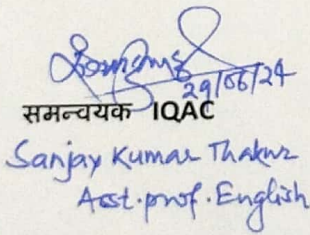 29/06/24
समन्वयक IQAC
Sanjay Kumar Thakur
Asst. prof. English